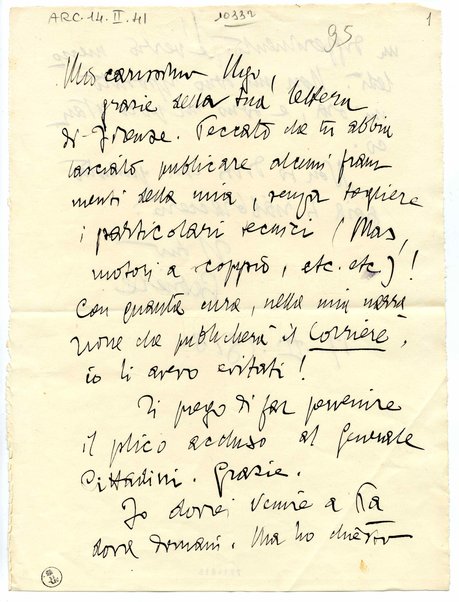 ARC. 14. II. 41
10332
95
1
Mio carissimo Ugo,
grazie della tua lettera
di Firenze. Peccato che tu abbia
lasciato publicare alcuni fram-
menti della mia, senza togliere
i particolari tecnici (Mas,
motori a scoppio, etc. etc)!
Con quanta cura, nella mia narra
zione che publicherà il Corriere,
io li avevo evitati!
Ti prego di far pervenire
il plico accluso al Generale
Cittadini. Grazie.
Io dovrei venire a Pa
dova domani. Ma ho chiesto